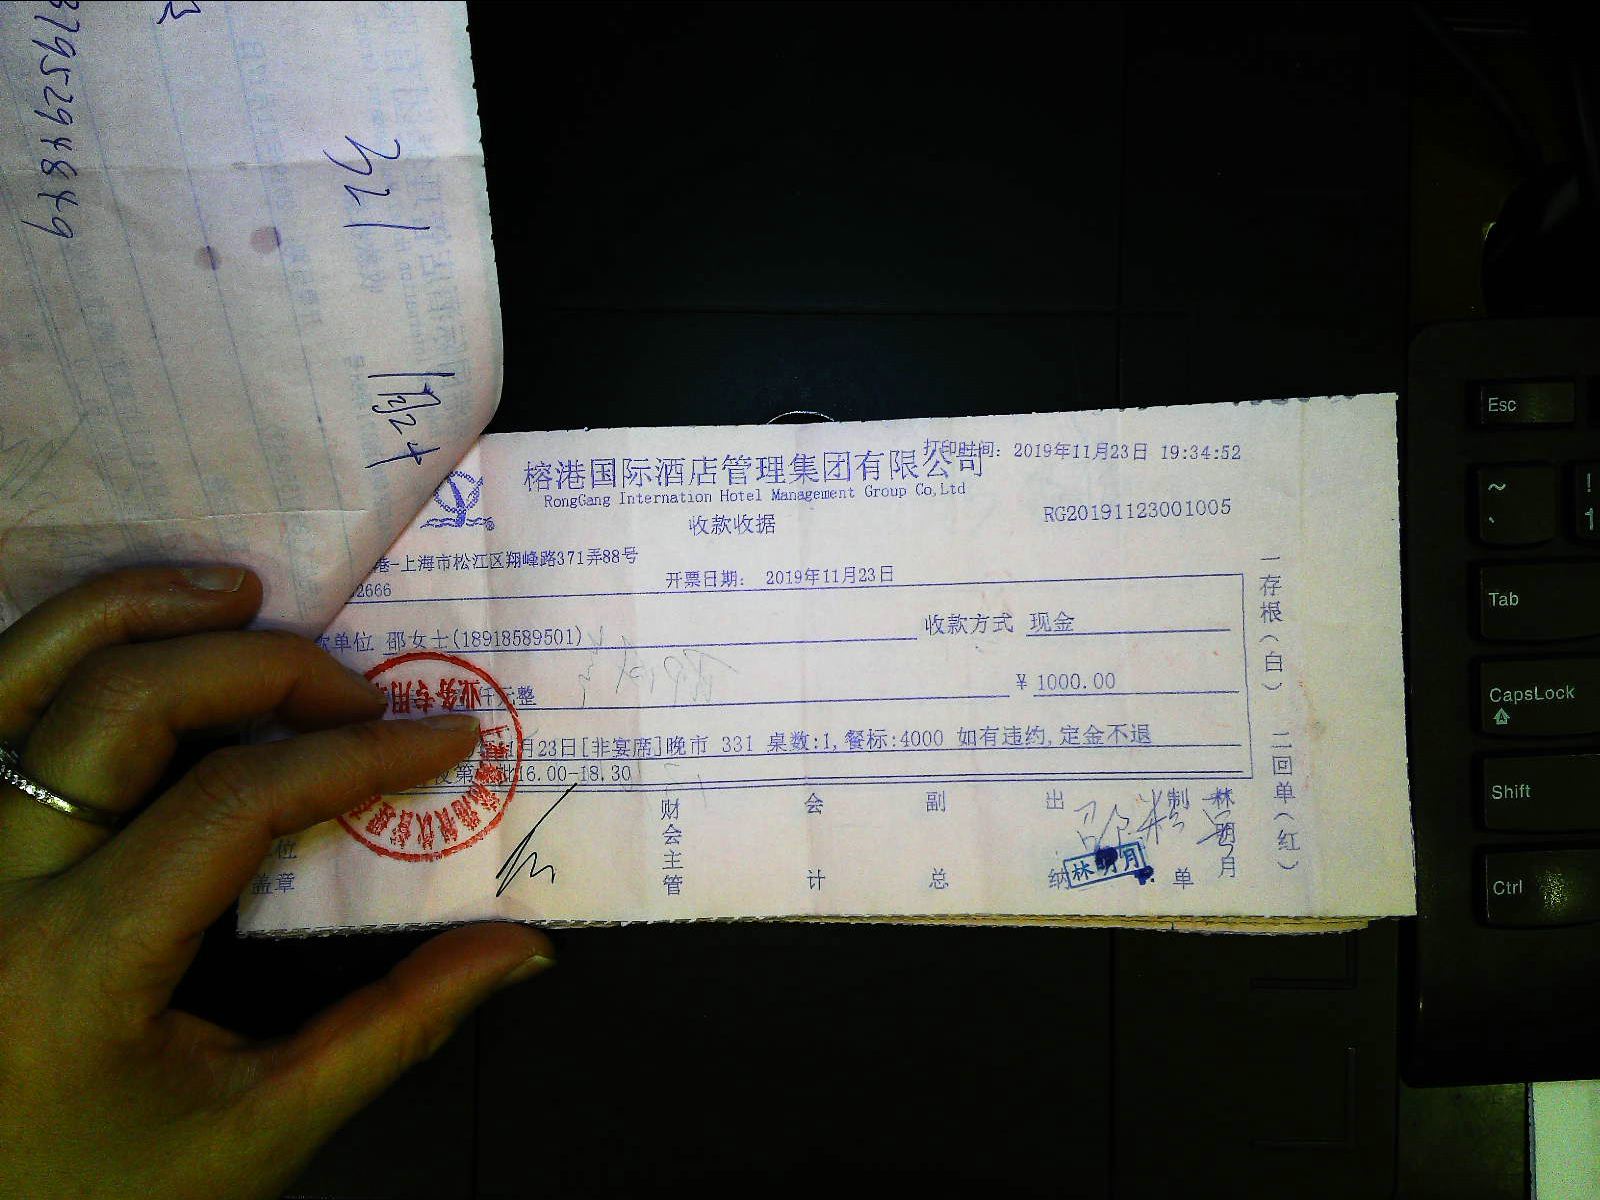 13795294849
331
11月24
打印时间: 2019年11月23日 19:34:52
榕港国际酒店管理集团有限公司
RongGang Internation Hotel Management Group Co,Ltd
收款收据
RG20191123001005
港-上海市松江区翔峰路371弄88号
2666
开票日期: 2019年11月23日
款单位 邵女士(18918589501)
收款方式 现金
仟元整
¥ 1000.00
月23日[非宴席]晚市 331 桌数:1,餐标:4000 如有违约,定金不退
16.00-18.30
业务专用
财会主管
会计
副总
出纳
制单
林明月
林明月
位
盖章
一存根(白)
二回单(红)
Esc
~
!
1
Tab
CapsLock
Shift
Ctrl